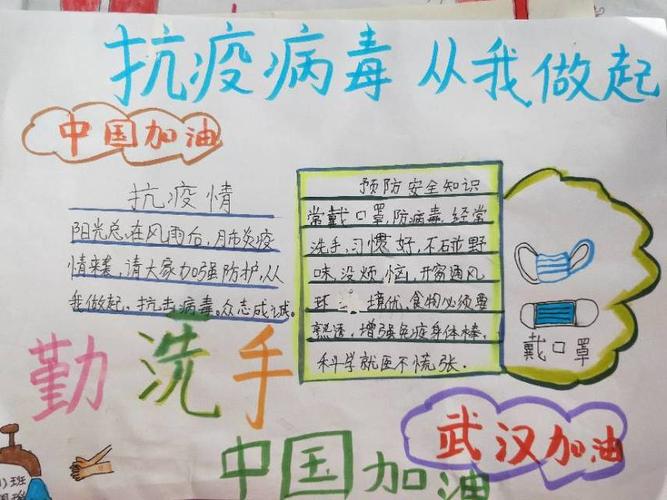 抗疫病毒 从我做起
中国加油
抗疫情
阳光总在风雨后,月市炎疫
情来袭,请大家加强防护,从
我做起、抗击病毒。众志成诚。
预防安全知识
常戴口罩,防病毒,经常
洗手,习惯好,不碰野
味没烦恼,开窗通风
环 境优,食物必须要
熟透,增强免疫身体棒,
科学就医不慌张.
戴口罩
勤洗手
武汉加油
中国加油
班